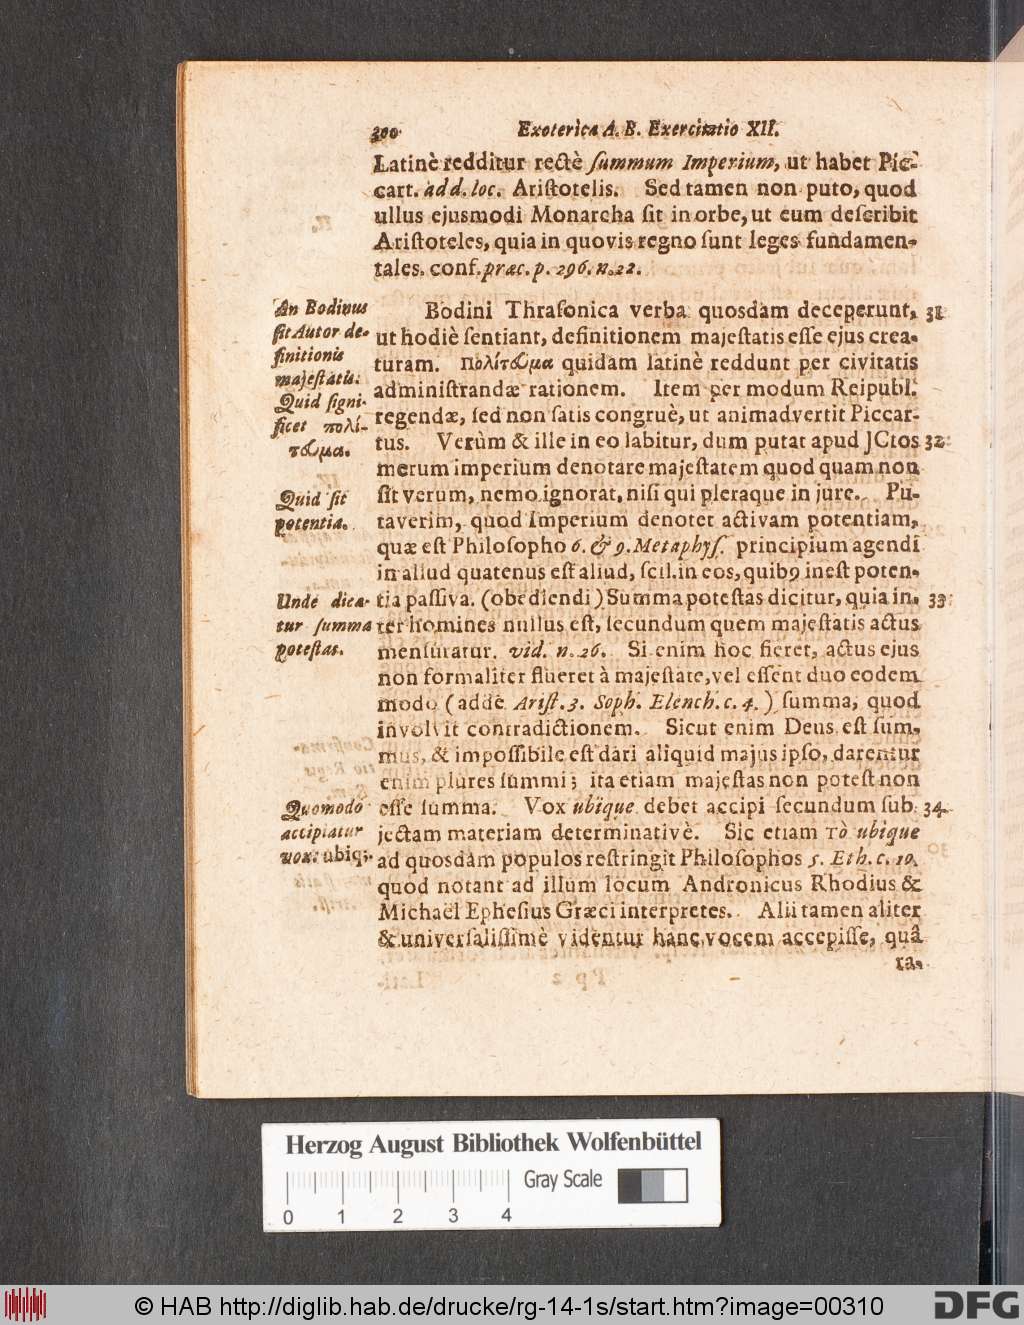 300. Exoterica A. B. Exercitatio XII.
Latinè redditur rectè ſummum Imperium, ut habet Pic-
cart. add. loc. Ariſtotelis. Sed tamen non puto, quod
ullus ejusmodi Monarcha ſit in orbe, ut eum deſcribit
Ariſtoteles, quia in quovis regno ſunt leges fundamen-
tales. conf. præc. p. 296. n. 22.
An Bodinus
ſit Autor de-
finitionis
majeſtatis.
Quid ſigni-
ficet πολί-
τευμα.
Bodini Thraſonica verba quosdam deceperunt, 31
ut hodiè ſentiant, definitionem majeſtatis eſſe ejus crea-
turam. πολίτευμα quidam latinè reddunt per civitatis
adminiſtrandæ rationem. Item per modum Reipubl.
regendæ, ſed non ſatis congruè, ut animadvertit Piccar-
tus. Verùm & ille in eo labitur, dum putat apud JCtos 32
merum imperium denotare majeſtatem quod quam non
Quid ſit
potentia.
ſit verum, nemo ignorat, niſi qui pleraque in jure. Pu-
taverim, quod Imperium denotet activam potentiam,
quæ eſt Philoſopho 6. & 9. Metaphyſ. principium agendi
in aliud quatenus eſt aliud, ſcil. in eos, quib9 ineſt poten-
Unde dica-
tur ſumma
poteſtas.
tia paſſiva. (obediendi) Summa poteſtas dicitur, quia in- 33
ter homines nullus eſt, ſecundum quem majeſtatis actus
menſuratur. vid. n. 26. Si enim hoc fieret, actus ejus
non formaliter flueret à majeſtate, vel eſſent duo eodem
modo (adde Ariſt. 3. Soph. Elench. c. 4.) ſumma, quod
involvit contradictionem. Sicut enim Deus eſt ſum-
mus, & impoſſibile eſt dari aliquid majus ipſo, darentur
enim plures ſummi; ita etiam majeſtas non poteſt non
Quomodo
accipiatur
vox: ubiq;
eſſe ſumma. Vox ubique debet accipi ſecundum ſub- 34
jectam materiam determinativè. Sic etiam τὸ ubique
ad quosdam populos reſtringit Philoſophos 5. Eth. c. 10.
quod notant ad illum locum Andronicus Rhodius &
Michaël Epheſius Græci interpretes. Alii tamen aliter
& univerſaliſſimè videntur hanc vocem accepiſſe, quâ
ra-
Herzog August Bibliothek Wolfenbüttel
Gray Scale
0 1 2 3 4
© HAB http://diglib.hab.de/drucke/rg-14-1s/start.htm?image=00310
DFG